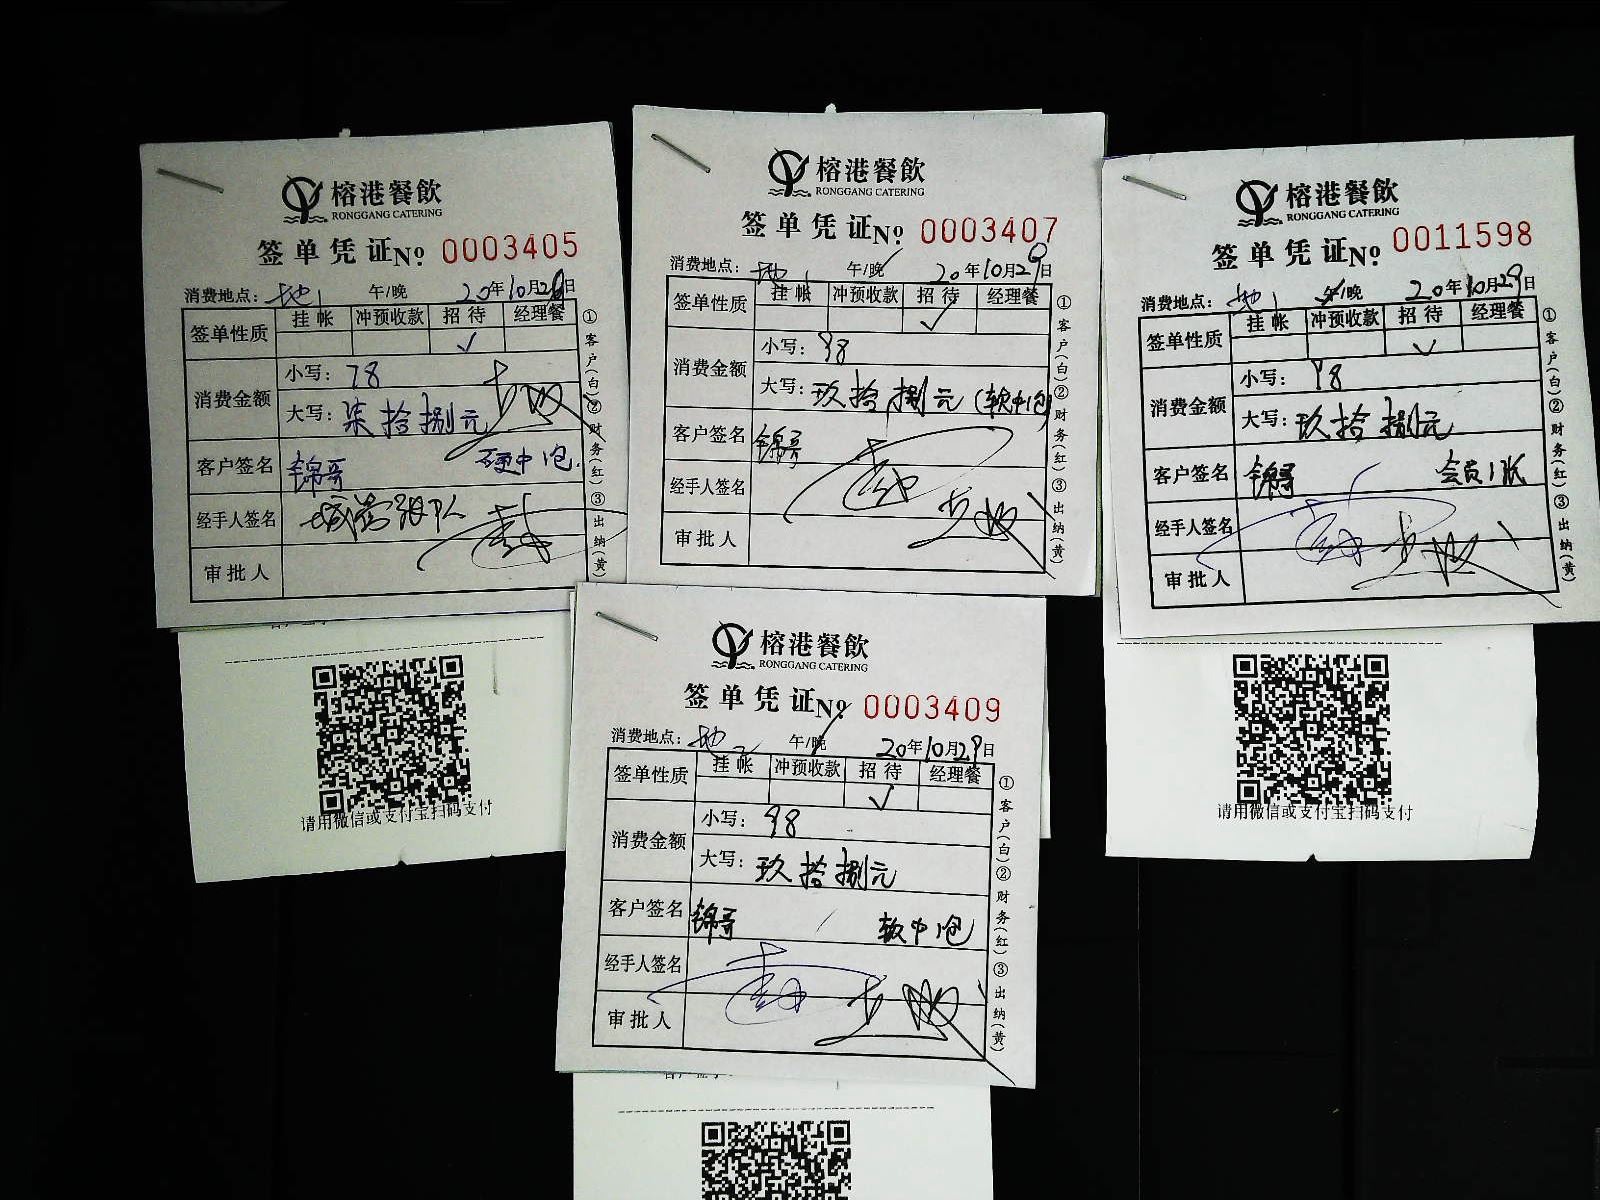 榕港餐飲
RONGGANG CATERING
签单凭证 No. 0003405
消费地点: 地1 午/晚 20年10月28日
签单性质 挂帐 冲预收款 招待 经理餐
√
消费金额 小写: 78
大写: 柒拾捌元
客户签名 锦哥 硬中1包.
经手人签名
审批人
①客户(白)②财务(红)③出纳(黄)
请用微信或支付宝扫码支付
榕港餐飲
RONGGANG CATERING
签单凭证 No. 0003407
消费地点: 地1 午/晚 20年10月29日
签单性质 挂帐 冲预收款 招待 经理餐
√
消费金额 小写: 98
大写: 玖拾捌元(软中1包)
客户签名 锦哥
经手人签名
审批人
①客户(白)②财务(红)③出纳(黄)
榕港餐飲
RONGGANG CATERING
签单凭证 No. 0011598
消费地点: 地1 午/晚 20年10月29日
签单性质 挂帐 冲预收款 招待 经理餐
√
消费金额 小写: 98
大写: 玖拾捌元
客户签名 锦哥 会员1张
经手人签名
审批人
①客户(白)②财务(红)③出纳(黄)
请用微信或支付宝扫码支付
榕港餐飲
RONGGANG CATERING
签单凭证 No. 0003409
消费地点: 地2 午/晚 20年10月29日
签单性质 挂帐 冲预收款 招待 经理餐
√
消费金额 小写: 98
大写: 玖拾捌元
客户签名 锦哥 软中1包
经手人签名
审批人
①客户(白)②财务(红)③出纳(黄)